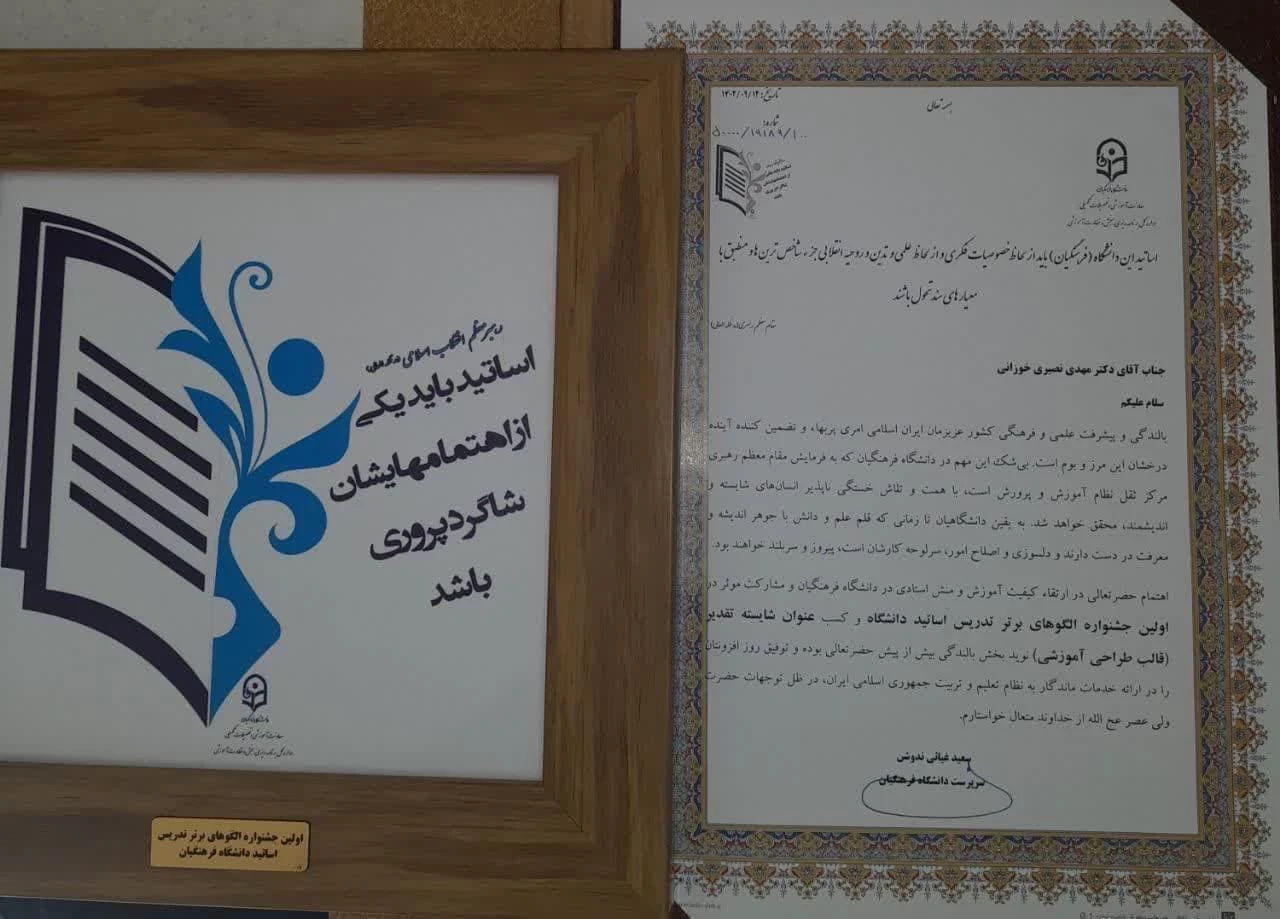 بسمه تعالی
تاریخ: ۱۴۰۲/۰۹/۱۲
شماره:
۵۰۰۰۰/۱۹۱۸۹/۱۰۰
دانشگاه فرهنگیان
معاونت آموزشی و تحصیلات تکمیلی
اساتید این دانشگاه (فرهنگیان) باید از لحاظ خصوصیات فکری و از لحاظ علمی و تدین و روحیه انقلابی جزء شاخص ترین ها و منطبق با
معیارهای سند تحول باشند
مقام معظم رهبری (مد ظله العالی)
جناب آقای دکتر مهدی نصیری خوزانی
سلام علیکم
بالندگی و پیشرفت علمی و فرهنگی کشور عزیزمان ایران اسلامی امری پربهاء و تضمین کننده آینده
درخشان این مرز و بوم است. بی‌شک این مهم در دانشگاه فرهنگیان که به فرمایش مقام معظم رهبری
مرکز ثقل نظام آموزش و پرورش است، با همت و تلاش خستگی ناپذیر انسان‌های شایسته و
اندیشمند، محقق خواهد شد. به یقین دانشگاهیان تا زمانی که قلم علم و دانش با جوهر اندیشه و
معرفت در دست دارند و دلسوزی و اصلاح امور، سرلوحه کارشان است، پیروز و سربلند خواهند بود.
اهتمام حضرتعالی در ارتقاء کیفیت آموزش و منش استادی در دانشگاه فرهنگیان و مشارکت موثر در
اولین جشنواره الگوهای برتر تدریس اساتید دانشگاه و کسب عنوان شایسته تقدیر
(قالب طراحی آموزشی) نوید بخش بالندگی بیش از پیش حضرتعالی بوده و توفیق روز افزونتان
را در ارائه خدمات ماندگار به نظام تعلیم و تربیت جمهوری اسلامی ایران، در ظل توجهات حضرت
ولی عصر عج الله از خداوند متعال خواستارم.
سعید غیاثی ندوشن
سرپرست دانشگاه فرهنگیان
رهبر معظم انقلاب اسلامی
اساتید باید یکی
از اهتمامهایشان
شاگردپروری
باشد
دانشگاه فرهنگیان
معاونت آموزشی و تحصیلات تکمیلی
اولین جشنواره الگوهای برتر تدریس
اساتید دانشگاه فرهنگیان